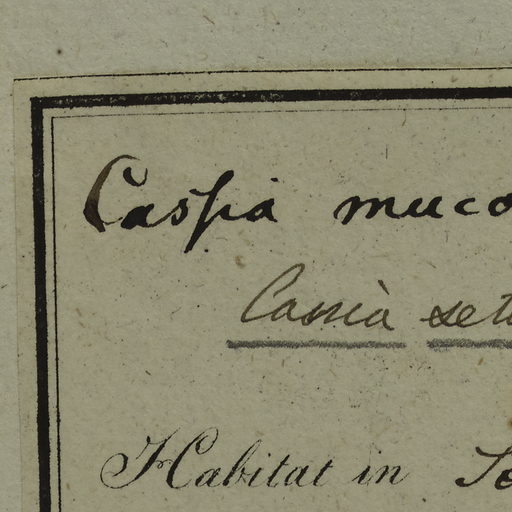 Cassia muco
Cassia set
Habitat in So